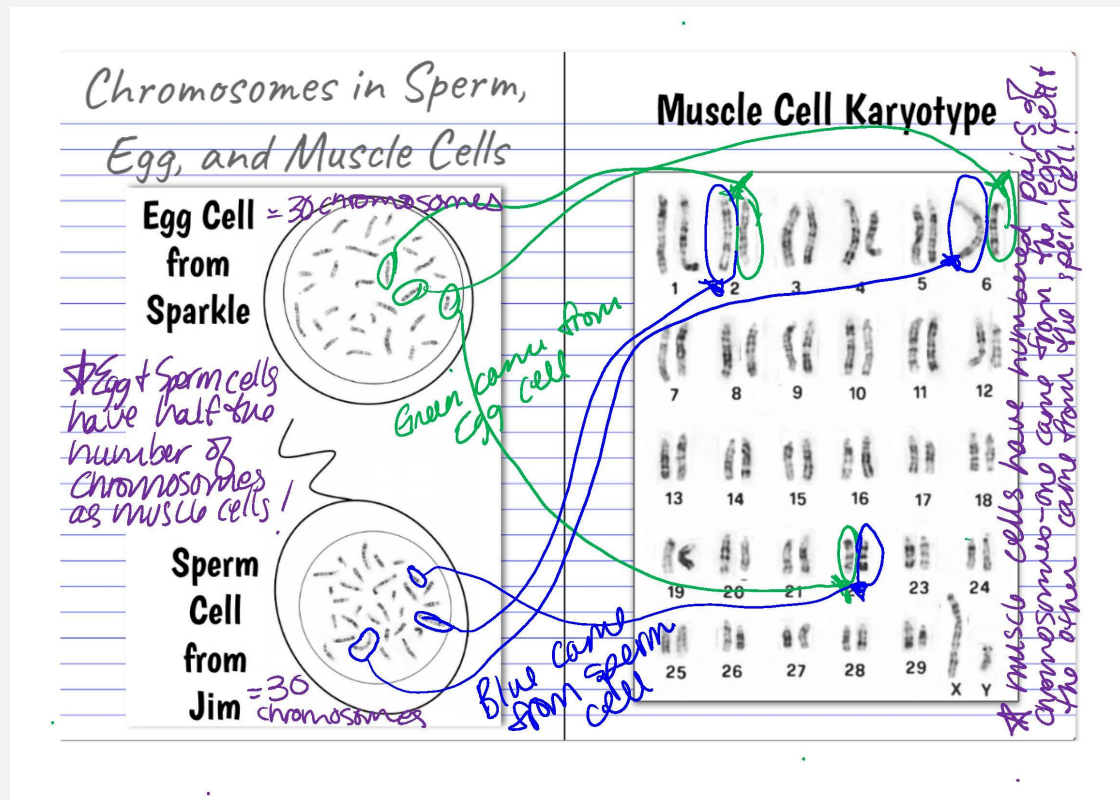 Chromosomes in Sperm,
Egg, and Muscle Cells
Egg Cell
from
Sparkle
= 30 chromosomes
* Egg + Sperm cells
have half the
number of
chromosomes
as muscle cells!
Sperm
Cell
from
Jim
= 30
chromosomes
Green came from
Egg cell
Blue came
from sperm
cell
Muscle Cell Karyotype
1 2 3 4 5 6
7 8 9 10 11 12
13 14 15 16 17 18
19 20 21 23 24
25 26 27 28 29 X Y
* muscle cells have numbered pairs of
chromosomes - one came from the egg cell +
the other came from the sperm cell!